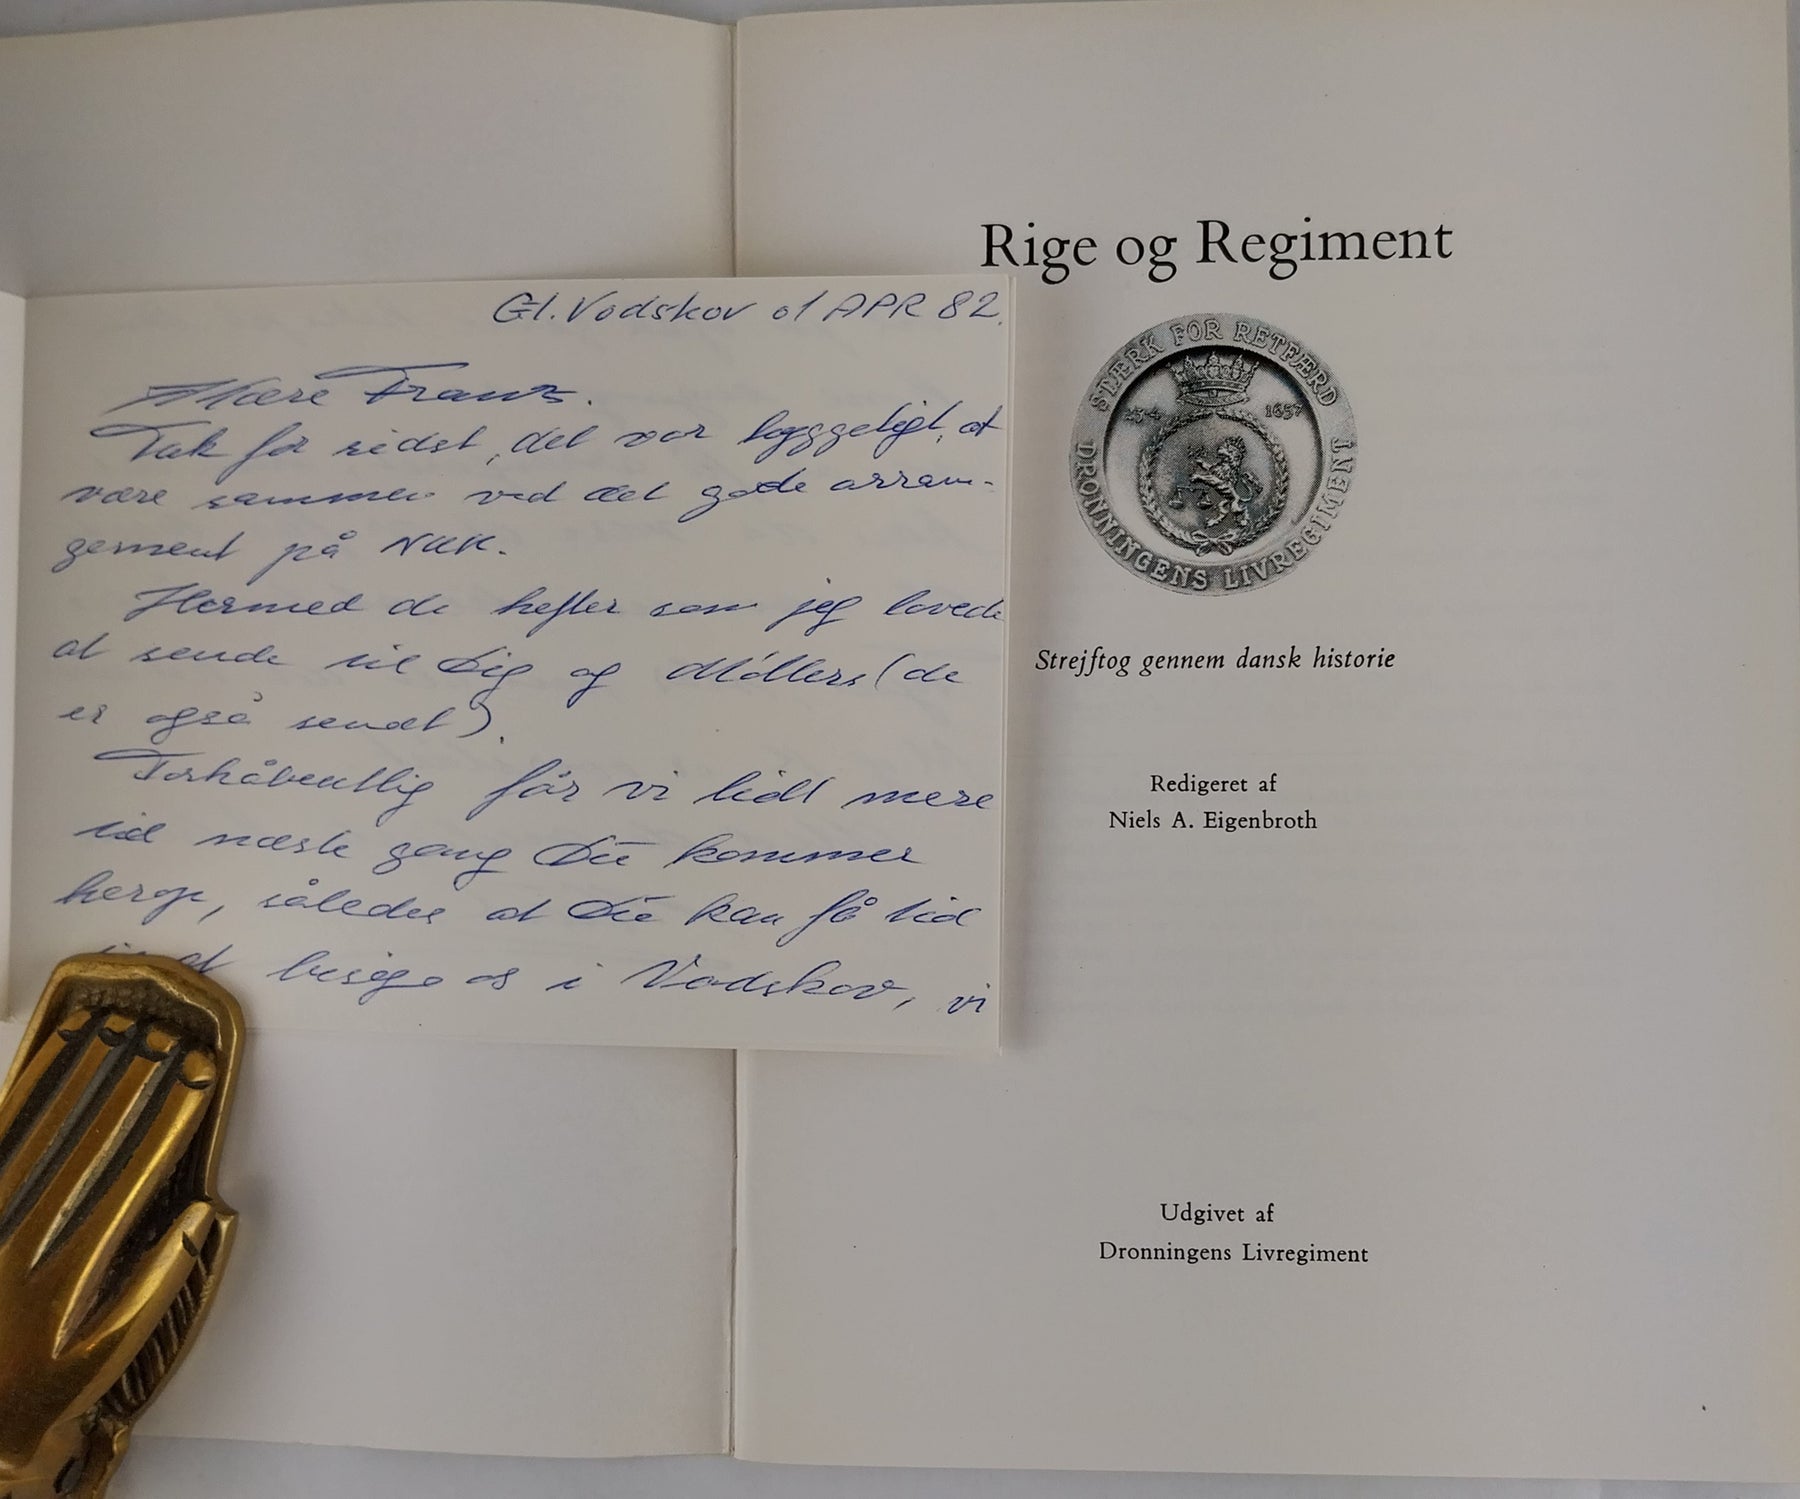 Gl. Vodskov 01 APR 82.
Kære Franz.
Tak for sidst, det var hyggeligt, at
være sammen ved det gode arran-
gement på NUK.
Hermed de hefter som jeg lovede
at sende til Dig og Møllers (de
er også sendt).
Forhåbentlig får vi lidt mere
tid næste gang Du kommer
herop, således at Du kan få tid
at besøge os i Vodskov, vi
Rige og Regiment
STÆRK FOR RETFÆRD
1657
DRONNINGENS LIVREGIMENT
Strejftog gennem dansk historie
Redigeret af
Niels A. Eigenbroth
Udgivet af
Dronningens Livregiment